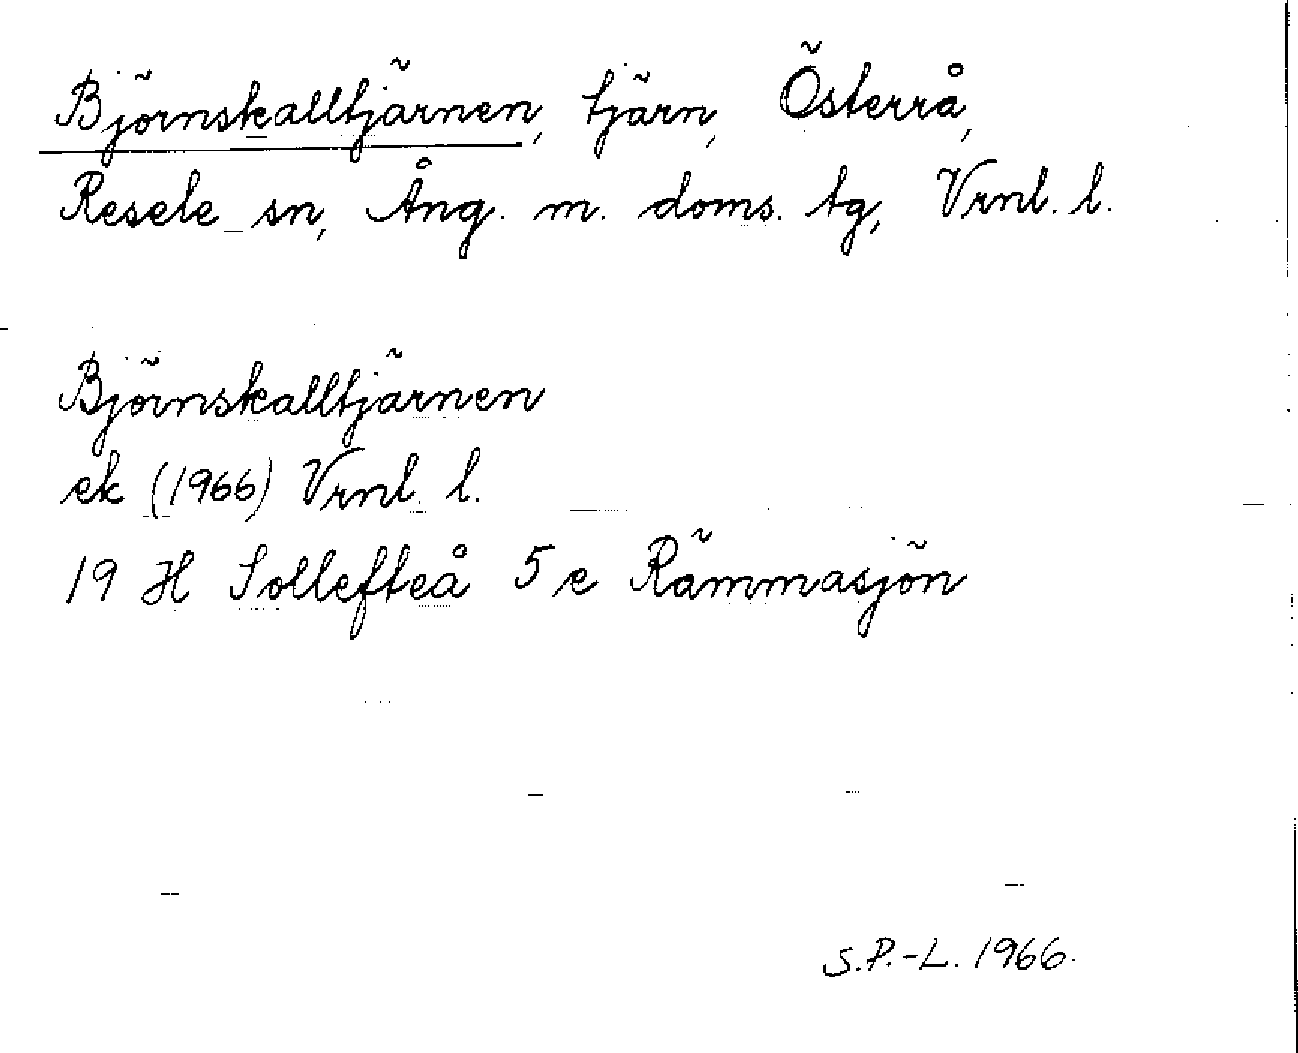 Björnskalltjärnen, tjärn, Österrå,
Resele sn, Ång. m. doms. tg, Vrnl. l.
Björnskalltjärnen
ek (1966) Vrnl. l.
19 H Sollefteå 5 e Rämmasjön
S.P.-L. 1966.